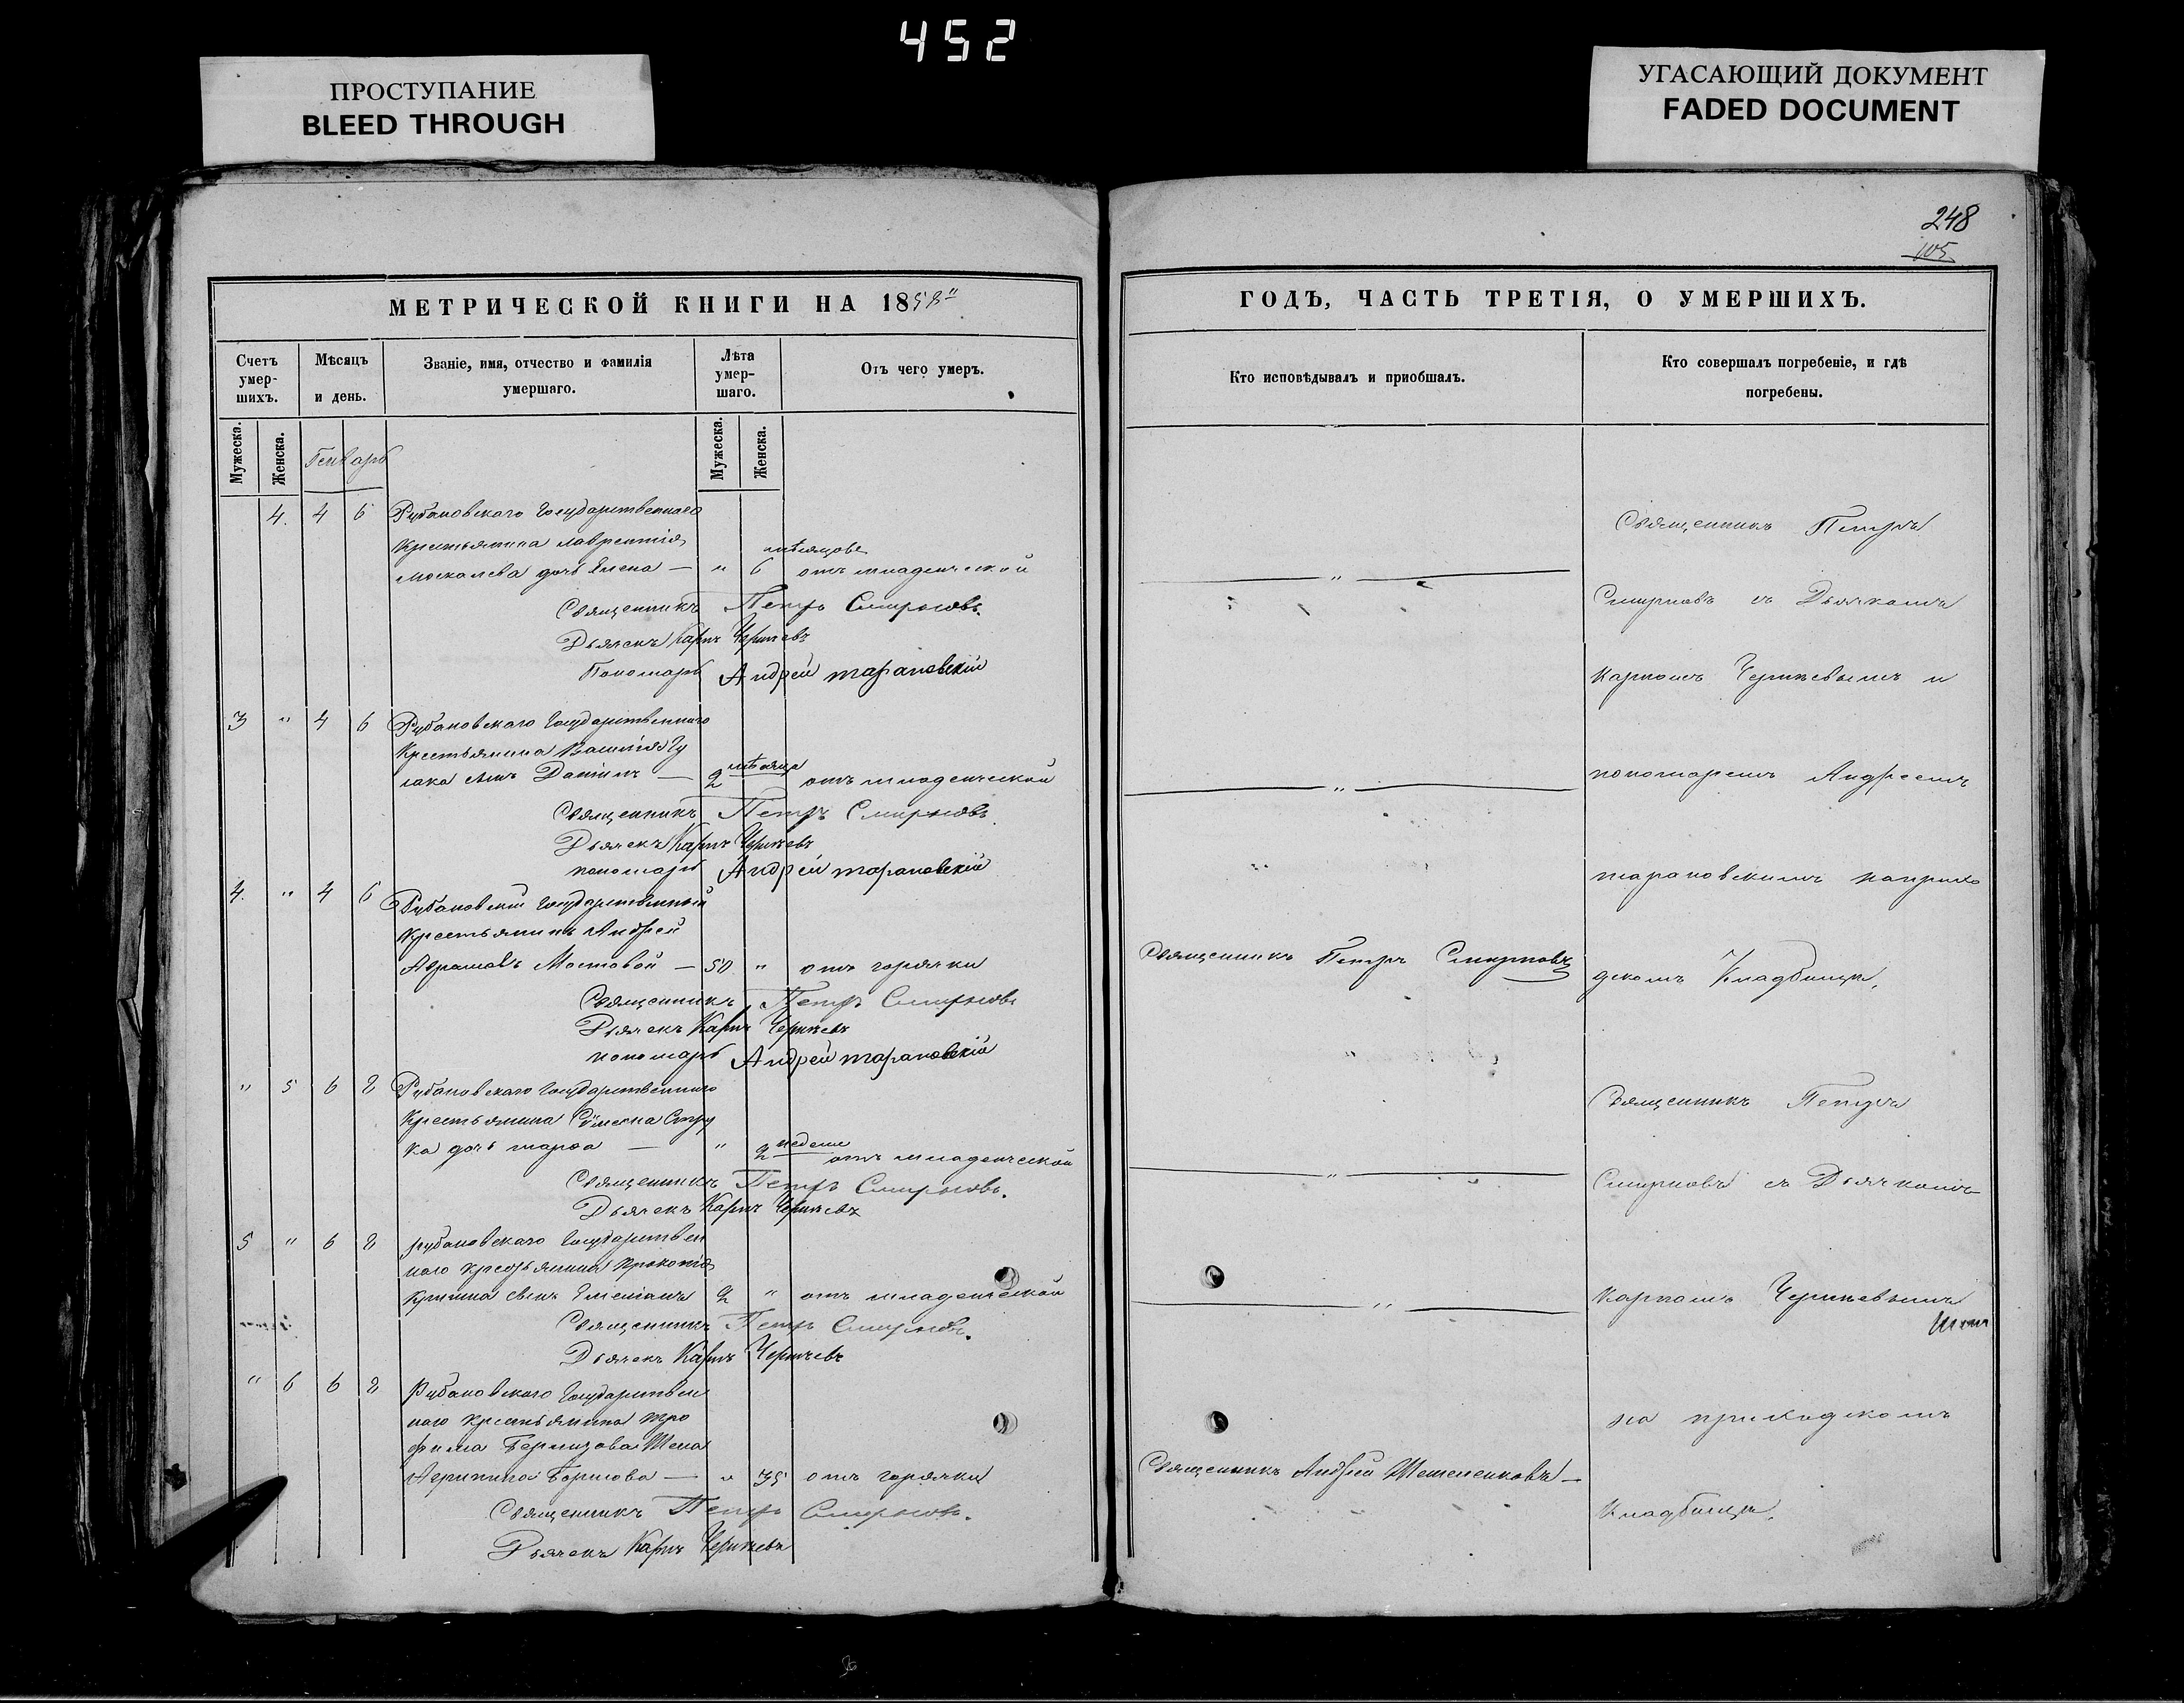 452
ПРОСТУПАНИЕ
BLEED THROUGH
УГАСАЮЩИЙ ДОКУМЕНТ
FADED DOCUMENT
248
105
МЕТРИЧЕСКОЙ КНИГИ НА 1858
Счетъ умер-шихъ.
Мѣсяцъ и день.
Званіе, имя, отчество и фамилія умершаго.
Лѣта умер-шаго.
Отъ чего умеръ.
Мужеска.
Женска.
Генварь
Мужеска.
Женска.
4. 4 6 Рубановскаго Государственнаго
Крестьянина Лаврентія
Москалева дочь Елена — " 6 мѣсяцовъ отъ младенческой
Священникъ Петръ Смирновъ.
Дьячекъ Карпъ
Пономарь Андрей Тарановскій
3 " 4 6 Рубановскаго Государственнаго
Крестьянина Василія Гу
лака сынъ Даніилъ — 2 мѣсяца отъ младенческой
Священникъ Петръ Смирновъ
Дьячекъ Карпъ
пономарь Андрей Тарановскій
4. " 4 6 Рубановскій Государственный
Крестьянинъ Андрей
Абрамовъ Мостовой — 50 " отъ горячки
Священникъ Петръ Смирновъ
Дьячекъ Карпъ
пономарь Андрей Тарановскій
" 5 6 8 Рубановскаго Государственнаго
Крестьянина Сѵмеона Стру
ка дочь Марѳа — " 2 недели отъ младенческой
Священникъ Петръ Смирновъ.
Дьячекъ Карпъ
5 " 6 8 Рубановскаго Государствен
наго крестьянина Прокопія
сынъ Емеліанъ 2 " отъ младенческой
Священникъ Петръ Смирновъ.
Дьячекъ Карпъ
" 6 6 8 Рубановскаго Государствен
наго крестьянина Тро
фима Жена
Борисова — " 35 отъ горячки
Священникъ Петръ Смирновъ.
Дьячекъ Карпъ
ГОДЪ, ЧАСТЬ ТРЕТІЯ, О УМЕРШИХЪ.
Кто исповѣдывалъ и приобшалъ.
Кто совершалъ погребеніе, и гдѣ погребены.
— " —
— " —
Священникъ Петръ Смирновъ
— " —
— " —
Священникъ Андрей —
Священникъ Петръ
Смирновъ съ Дьячкомъ
Карпомъ и
пономаремъ Андреемъ
Тарановскимъ наприхо
дскомъ Кладбище.
Священникъ Петръ
Смирновъ съ Дьячкомъ
Карпомъ
на приходскомъ
Кладбище.